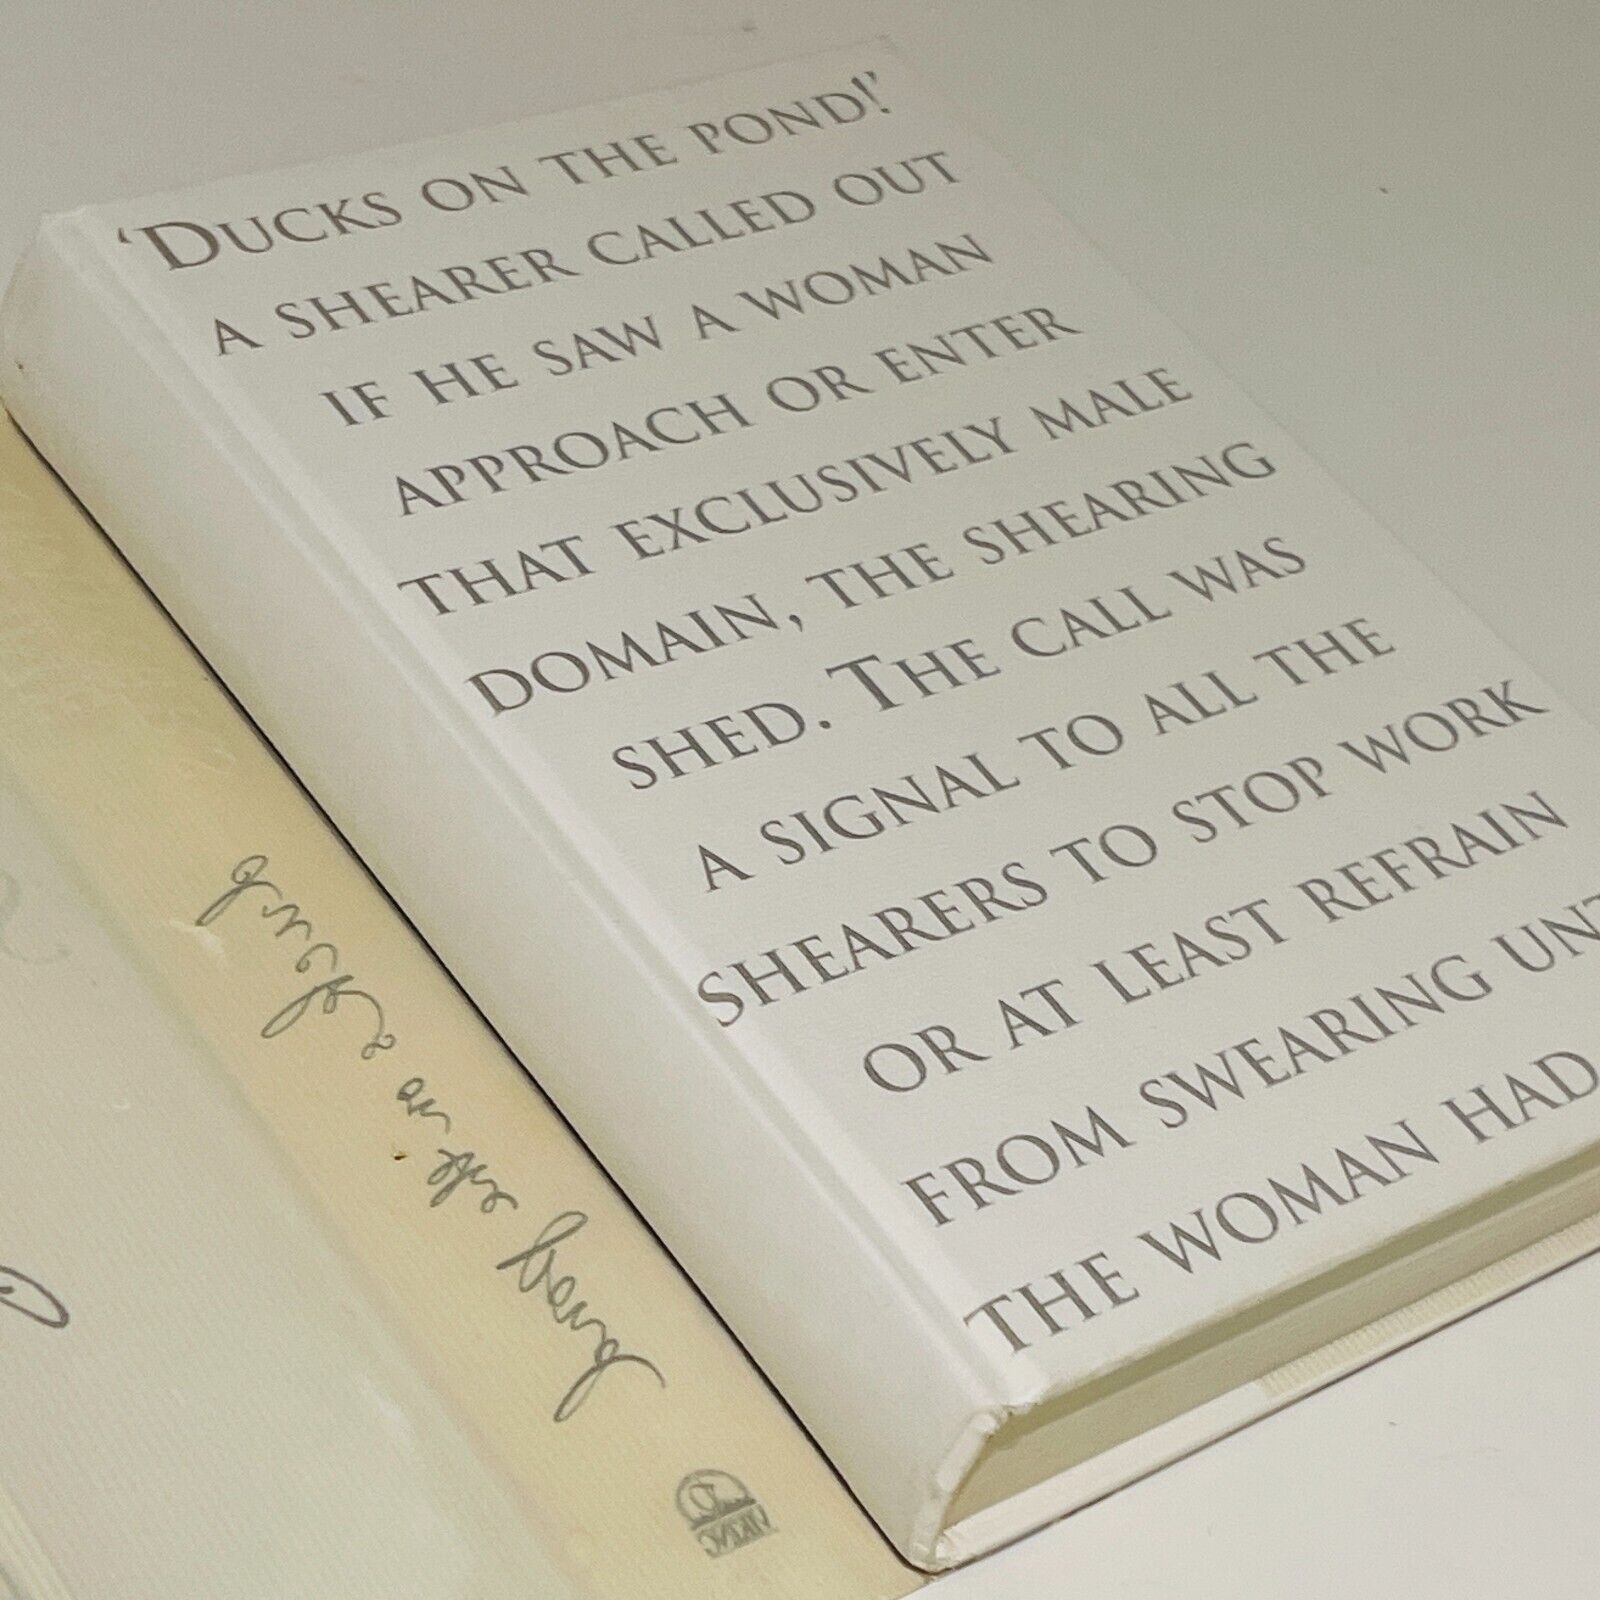 ‘DUCKS ON THE POND!’
A SHEARER CALLED OUT
IF HE SAW A WOMAN
APPROACH OR ENTER
THAT EXCLUSIVELY MALE
DOMAIN, THE SHEARING
SHED. THE CALL WAS
A SIGNAL TO ALL THE
SHEARERS TO STOP WORK
OR AT LEAST REFRAIN
FROM SWEARING UNT
THE WOMAN HAD
Ducks on the Pond
VIKING